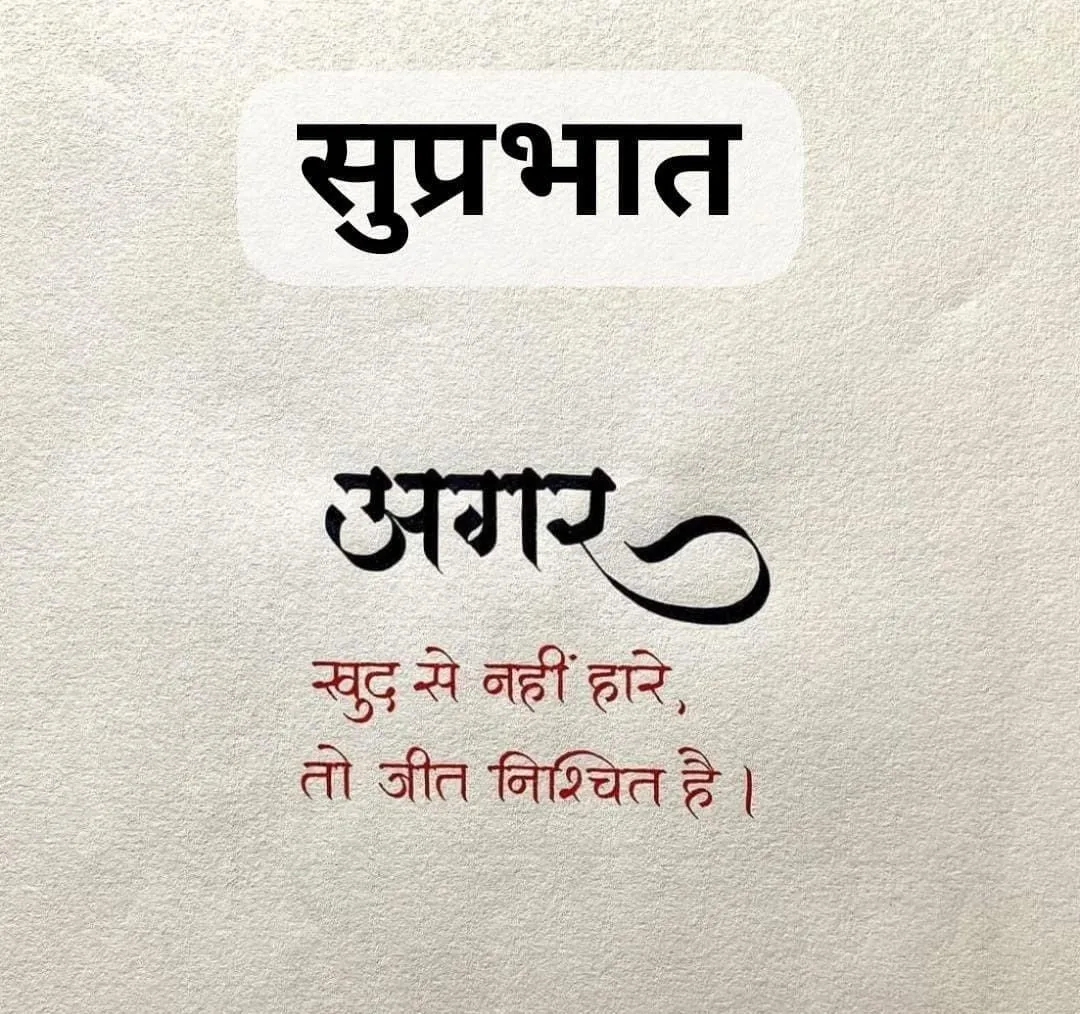 सुप्रभात
अगर
खुद से नहीं हारे,
तो जीत निश्चित है।